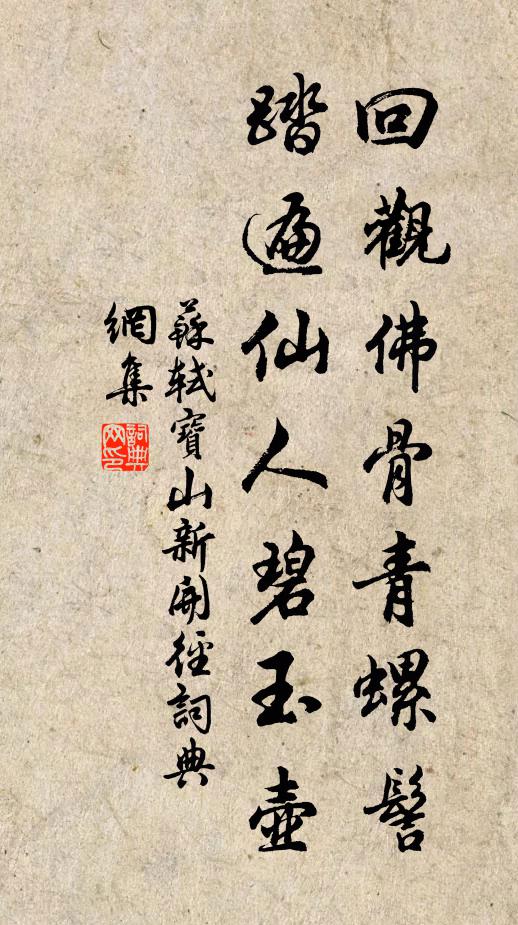 回觀佛骨青螺髻
踏遍仙人碧玉壺
蘇軾寶山新開徑詞典
網集
詞典網印